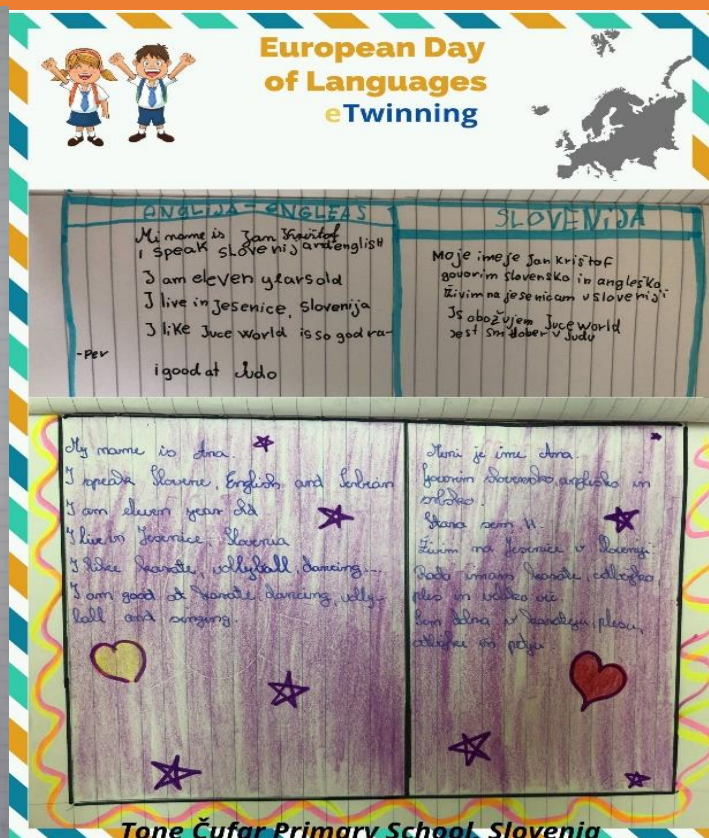 European Day
of Languages
eTwinning
ANGLIJA - ENGLEAS
Mi name is Jan Krištof
i speak slovenij and english
I am eleven years old
I live in Jesenice, Slovenija
I like Juce World is so god ra-
-per
i good at Judo
SLOVENIJA
Moje ime je Jan Krištof
govorim slovensko in angleško
živim na jesenicam v sloveniji
Js obožujem Juce world
jest sm dober v judu
My name is Ana.
I speak Slovene, English and Serbian
I am eleven year old
I live in Jesenice, Slovenia
I like karate, vollyball, dancing...
I am good at karate, dancing, volly-
ball and singing.
Meni je ime Ana.
Govorim slovensko, angleško in
srbsko.
Stara sem 11.
Živim na Jesenice v Sloveniji.
Rada imam karate, odbojko,
ples in veliko več
Sem dobra v karateju, plesu,
odbojki in petju.
Tone Čufar Primary School, Slovenia